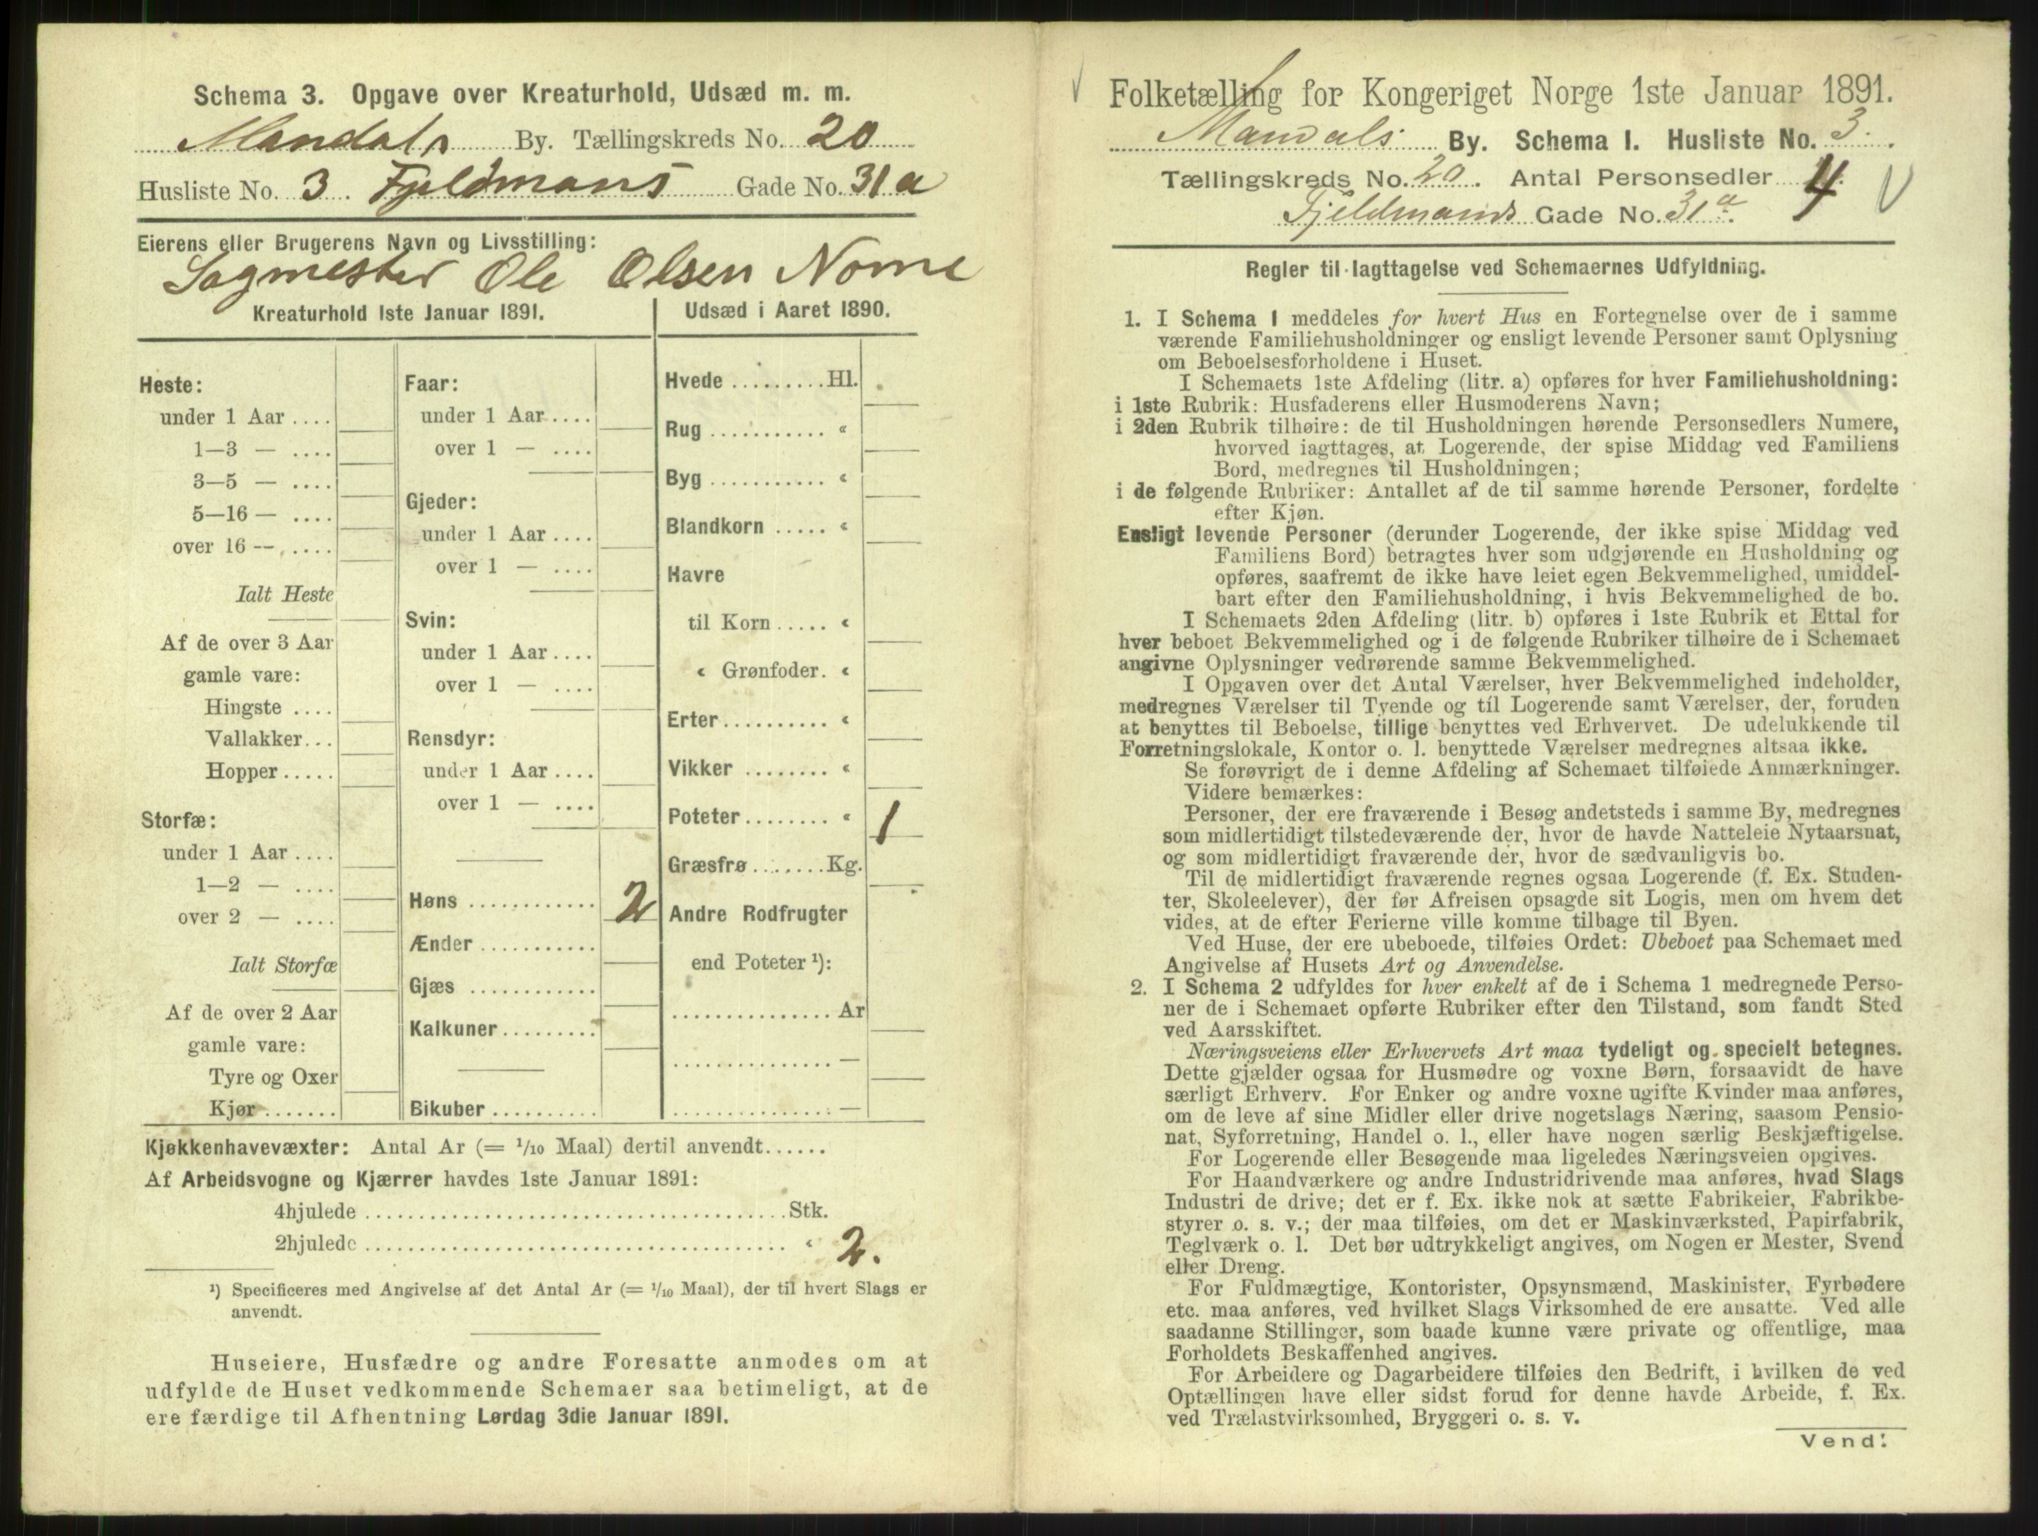 Schema 3. Opgave over Kreaturhold, Udsæd m. m.
Mandals By. Tællingskreds No. 20
Husliste No. 3 Fjeldmans Gade No. 31 a
Eierens eller Brugerens Navn og Livsstilling:
Sagmester Ole Olsen Nome
Kreaturhold 1ste Januar 1891.
Heste:
under 1 Aar ....
1—3 — ....
3—5 — ....
5—16 — ....
over 16 — ....
Ialt Heste
Af de over 3 Aar
gamle vare:
Hingste ....
Vallakker...
Hopper .....
Storfæ:
under 1 Aar ....
1—2 — ....
over 2 — ....
Ialt Storfæ
Af de over 2 Aar
gamle vare:
Tyre og Oxer
Kjør .......
Faar:
under 1 Aar ....
over 1 — ....
Gjeder:
under 1 Aar ....
over 1 — ....
Svin:
under 1 Aar ....
over 1 — ....
Rensdyr:
under 1 Aar ....
over 1 — ....
Høns ............ 2
Ænder ...........
Gjæs ............
Kalkuner.........
Bikuber ..........
Udsæd i Aaret 1890.
Hvede ......... Hl.
Rug ........... «
Byg ........... «
Blandkorn ..... «
Havre
til Korn ..... «
« Grønfoder. «
Erter.......... «
Vikker ........ «
Poteter........ « 1
Græsfrø ....... Kg.
Andre Rodfrugter
end Poteter ¹):
............... Ar
............... —
............... —
Kjøkkenhavevæxter: Antal Ar (= 1/10 Maal) dertil anvendt......
Af Arbeidsvogne og Kjærrer havdes 1ste Januar 1891:
4hjulede ....................................... Stk.
2hjulede ....................................... « 2.
¹) Specificeres med Angivelse af det Antal Ar (= 1/10 Maal), der til hvert Slags er
anvendt.
Huseiere, Husfædre og andre Foresatte anmodes om at
udfylde de Huset vedkommende Schemaer saa betimeligt, at de
ere færdige til Afhentning Lørdag 3die Januar 1891.
Folketælling for Kongeriget Norge 1ste Januar 1891.
Mandals By. Schema I. Husliste No. 3.
Tællingskreds No. 20. Antal Personsedler 4
Fjeldmands Gade No. 31 a.
Regler til Iagttagelse ved Schemaernes Udfyldning.
1. I Schema 1 meddeles for hvert Hus en Fortegnelse over de i samme
værende Familiehusholdninger og ensligt levende Personer samt Oplysning
om Beboelsesforholdene i Huset.
I Schemaets 1ste Afdeling (litr. a) opføres for hver Familiehusholdning:
i 1ste Rubrik: Husfaderens eller Husmoderens Navn;
i 2den Rubrik tilhøire: de til Husholdningen hørende Personsedlers Numere,
hvorved iagttages, at Logerende, der spise Middag ved Familiens
Bord, medregnes til Husholdningen;
i de følgende Rubriker: Antallet af de til samme hørende Personer, fordelte
efter Kjøn.
Ensligt levende Personer (derunder Logerende, der ikke spise Middag ved
Familiens Bord) betragtes hver som udgjørende en Husholdning og
opføres, saafremt de ikke have leiet egen Bekvemmelighed, umiddel-
bart efter den Familiehusholdning, i hvis Bekvemmelighed de bo.
I Schemaets 2den Afdeling (litr. b) opføres i 1ste Rubrik et Ettal for
hver beboet Bekvemmelighed og i de følgende Rubriker tilhøire de i Schemaet
angivne Oplysninger vedrørende samme Bekvemmelighed.
I Opgaven over det Antal Værelser, hver Bekvemmelighed indeholder,
medregnes Værelser til Tyende og til Logerende samt Værelser, der, foruden
at benyttes til Beboelse, tillige benyttes ved Erhvervet. De udelukkende til
Forretningslokale, Kontor o. l. benyttede Værelser medregnes altsaa ikke.
Se forøvrigt de i denne Afdeling af Schemaet tilføiede Anmærkninger.
Videre bemærkes:
Personer, der ere fraværende i Besøg andetsteds i samme By, medregnes
som midlertidigt tilstedeværende der, hvor de havde Natteleie Nytaarsnat,
og som midlertidigt fraværende der, hvor de sædvanligvis bo.
Til de midlertidigt fraværende regnes ogsaa Logerende (f. Ex. Studen-
ter, Skoleelever), der før Afreisen opsagde sit Logis, men om hvem det
vides, at de efter Ferierne ville komme tilbage til Byen.
Ved Huse, der ere ubeboede, tilføies Ordet: Ubeboet paa Schemaet med
Angivelse af Husets Art og Anvendelse.
2. I Schema 2 udfyldes for hver enkelt af de i Schema 1 medregnede Perso-
ner de i Schemaet opførte Rubriker efter den Tilstand, som fandt Sted
ved Aarsskiftet.
Næringsveiens eller Erhvervets Art maa tydeligt og specielt betegnes.
Dette gjælder ogsaa for Husmødre og voxne Børn, forsaavidt de have
særligt Erhverv. For Enker og andre voxne ugifte Kvinder maa anføres,
om de leve af sine Midler eller drive nogetslags Næring, saasom Pensio-
nat, Syforretning, Handel o. l., eller have nogen særlig Beskjæftigelse.
For Logerende eller Besøgende maa ligeledes Næringsveien opgives.
For Haandværkere og andre Industridrivende maa anføres, hvad Slags
Industri de drive; det er f. Ex. ikke nok at sætte Fabrikeier, Fabrikbe-
styrer o. s. v.; der maa tilføies, om det er Maskinværksted, Papirfabrik,
Teglværk o. l. Det bør udtrykkeligt angives, om Nogen er Mester, Svend
eller Dreng.
For Fuldmægtige, Kontorister, Opsynsmænd, Maskinister, Fyrbødere
etc. maa anføres, ved hvilket Slags Virksomhed de ere ansatte. Ved alle
saadanne Stillinger, som baade kunne være private og offentlige, maa
Forholdets Beskaffenhed angives.
For Arbeidere og Dagarbeidere tilføies den Bedrift, i hvilken de ved
Optællingen have eller sidst forud for denne havde Arbeide, f. Ex.
ved Trælastvirksomhed, Bryggeri o. s. v.
Vend!